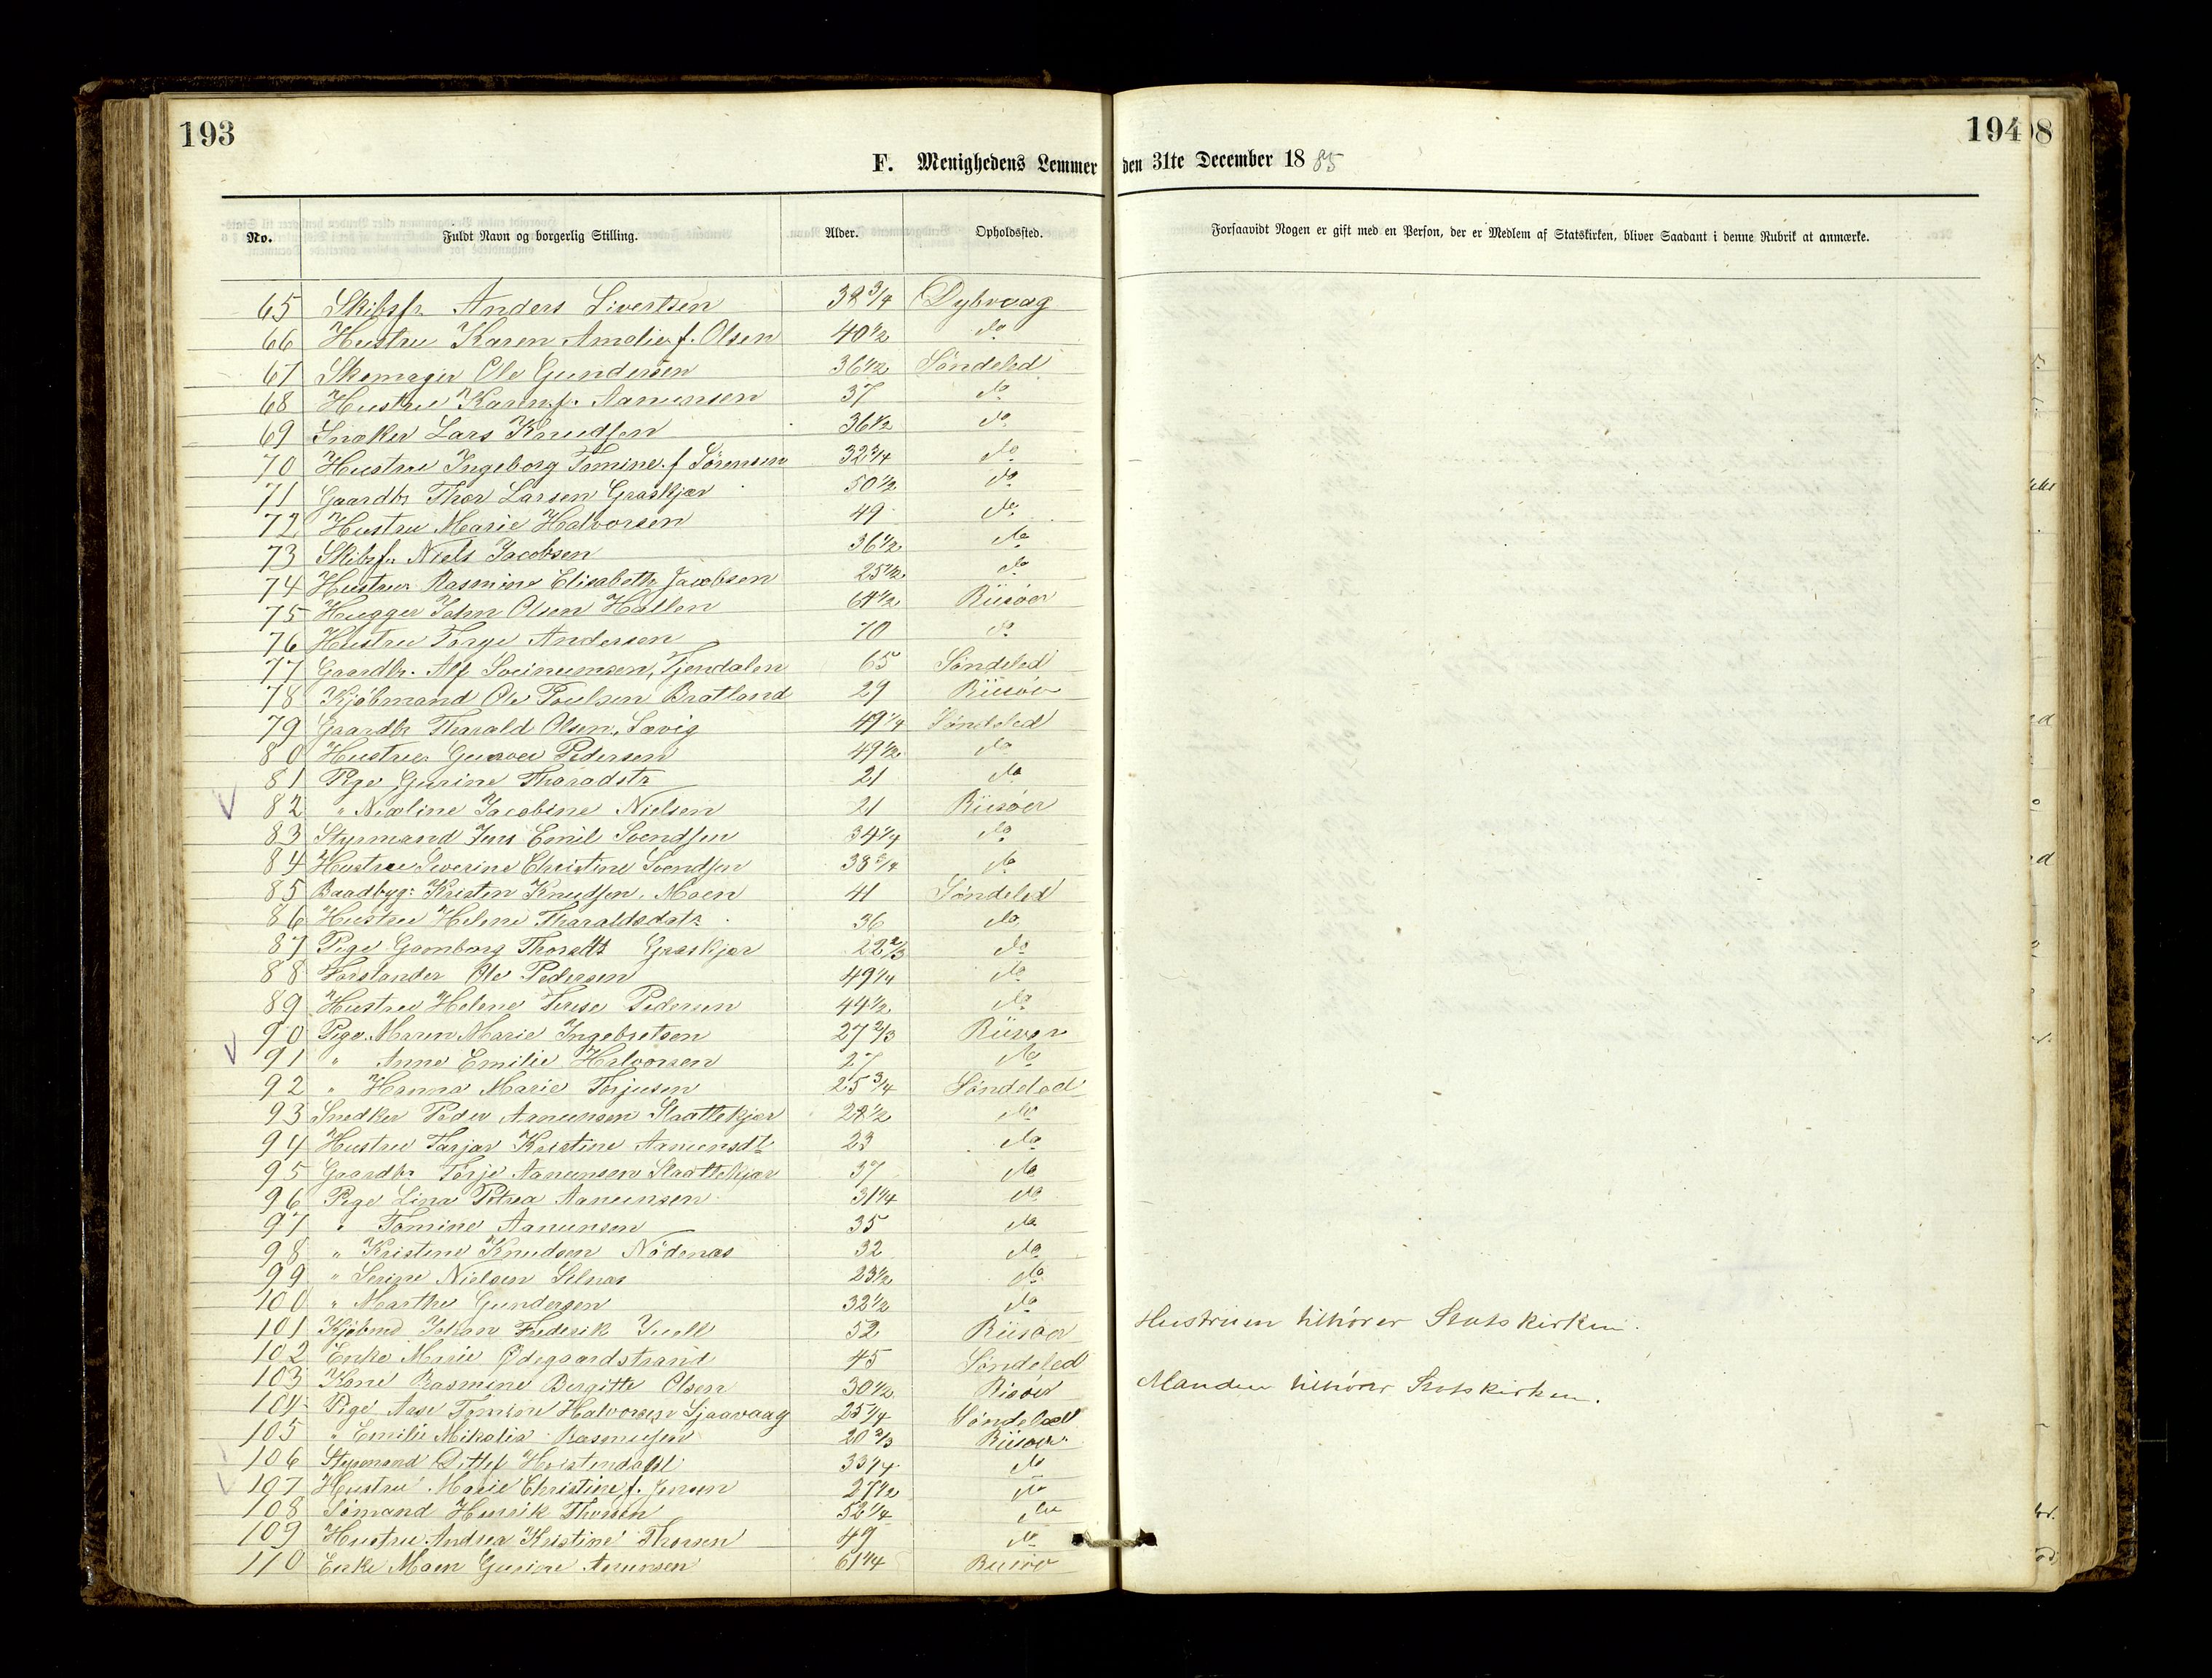 193
194
8
F. Menighedens Lemmer den 31te December 1885
No. Fuldt Navn og borgerlig Stilling. Alder. Opholdssted. Forsaavidt Nogen er gift med en Person, der er Medlem af Statskirken, bliver Saadant i denne Rubrik at anmærke.
65 Skibsfr. Anders Sivertsen 38 3/4 Dybvaag
66 Hustru Karen Amelie f. Olsen 40 1/2 do
67 Skomager Ole Gundersen 36 1/2 Søndeled
68 Hustru Karen f. Aanunsen 37 do
69 Snæker Lars Knudsen 36 1/2 do
70 Hustru Ingeborg Tomine f Sørensen 32 3/4 do
71 Gaardbr Thor Larsen Graskjær 50 1/2 do
72 Hustru Marie Halvorsen 49 do
73 Skibsf. Niels Jacobsen 36 1/2 do
74 Hustru Rasmine Elisabeth Jacobsen 25 1/2 do
75 Hugger John Olsen Hallen 64 1/2 Riisøer
76 Hustru Torge Andersen 70 do
77 Gaardbr. Alf Sveinumsen, Tjendalen 65 Søndeled
78 Kjøbmand Ole Poulsen Bratland 29 Riisøer
79 Gaardbr Tharald Olsen, Sævig 49 1/4 Søndeled
80 Hustru Gunvor Pedersen 49 1/2 do
81 Pige Gurine Tharadstr 21 do
82 " Nicoline Jacobine Nielsen 21 Riisøer
83 Styrmand Jens Emil Svendsen 34 1/4 do
84 Hustru Severine Christine Svendsen 38 3/4 do
85 Baadbyg: Kristen Knudsen, Moen 41 Søndeled
86 Hustru Helene Tharaldsdatr 36 do
87 Pige Gomborg Thorsdtr Græskjær 22 2/3 do
88 Forstander Ole Pedersen 49 1/4 do
89 Hustru Helene Terese Pedersen 44 1/2 do
90 Pige Maren Marie Ingebretsen 27 2/3 Riisøer
91 " Anne Emilie Halvorsen 27 do
92 " Hanna Marie Terjusen 25 3/4 Søndeled
93 Snedker Peder Aanunsen Slaattekjær 28 1/2 do
94 Hustru Tarjer Kristine Aanunsdtr 23 do
95 Gaardbr Torje Aanunsen Slaattekjær 37 do
96 Pige Lina Petrea Aanunsen 31 1/4 do
97 " Tomine Aanunsen 35 do
98 " Kristine Knudsen Nødenæs 32 do
99 " Serine Nielsen Selnæs 23 1/2 do
100 " Marthe Gundersen 32 1/2 do
101 Kjøbmd Johan Frederik Juell 52 Riisøer Hustruen tilhører Statskirken.
102 Enke Marie Ødegaardstrand 45 Søndeled
103 Kone Rasmine Bergitte Olsen 30 1/2 Risøer Manden tilhører Statskirken.
104 Pige Aase Tomine Halvorsen Sjaavaag 25 1/4 Søndeled
105 " Emilie Mikalia Rasmussen 20 2/3 Riisøer
106 Styrmand Ditlef Kristendahl 33 1/4 do
107 Hustru Marie Christine f. Jensen 27 1/2 do
108 Sømand Henrik Thorsen 52 1/4 do
109 Hustru Andrea Kristine Thorsen 49 do
110 Enke Maen Gurine Aanunsen 61 1/4 Riisøer